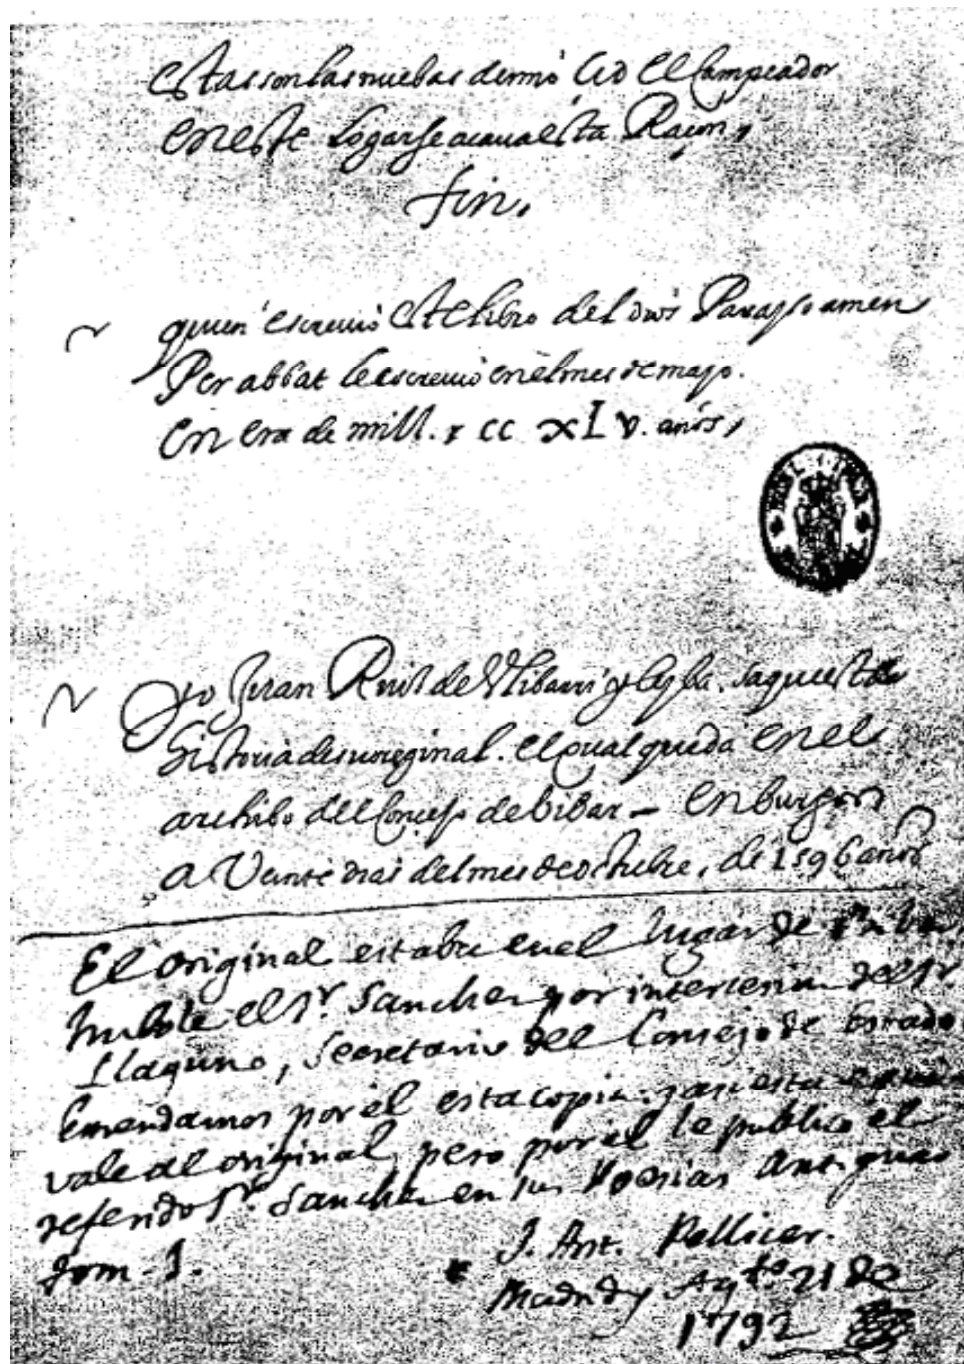 estas son las nuebas de mio Cid el Campeador
en este logar se acaua esta Raçon,
fin,
quien escreuio este libro del dios Parayso amen
Per abbat le escreuio en el mes de mayo.
en era de mill. x cc xL v. años,
yo Juan Ruiz de Vlibarri y leyba. saque esta
historia de su original. el qual queda en el
archibo del Concejo de bibar – en burgos
a Veinte dias del mes de octubre, de 1596 años
El original estaba en el lugar de
hubole el Sr. Sanchez por intercesion del Sr.
Llaguno, Secretario del Consejo de Estado
Emendamos por él esta copia: y asi esta
vale el original, pero por él le publicó el
referido Sr. Sanchez en sus Poesias Antiguas
Tom. I.
J. Ant. Pellicer.
Madrid y Agto 21 de
1792